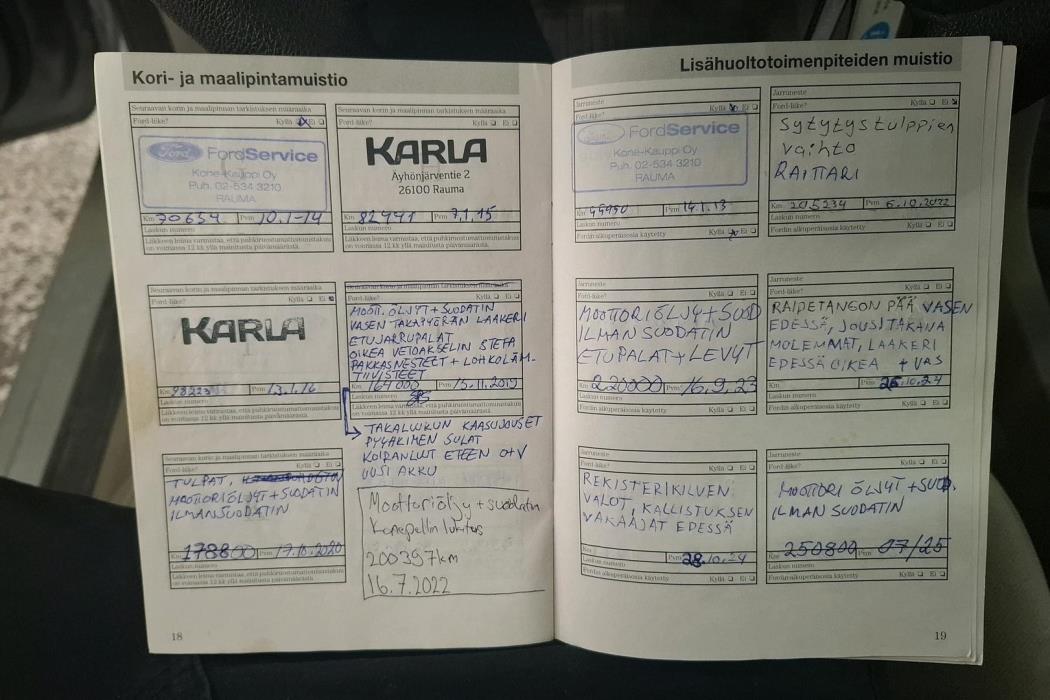 Kori- ja maalipintamuistio
Seuraavan korin ja maalipinnan tarkistuksen määräaika
Ford-liike? Kyllä Ei
Ford FordService
Kone-Kauppi Oy
Puh. 02-534 3210
RAUMA
Km 70654 Pvm 10.1-14
Laskun numero
Liikkeen leima varmastaa, että puhkiruostumattomuustakuu
on voimassa 12 kk yllä mainitusta päivämäärästä.
Seuraavan korin ja maalipinnan tarkistuksen määräaika
Ford-liike? Kyllä Ei
KARLA
Äyhönjärventie 2
26100 Rauma
Km 82441 Pvm 7.1.15
Laskun numero
Liikkeen leima varmastaa, että puhkiruostumattomuustakuu
on voimassa 12 kk yllä mainitusta päivämäärästä.
Seuraavan korin ja maalipinnan tarkistuksen määräaika
Ford-liike? Kyllä Ei
KARLA
Km Pvm 13.1.16
Laskun numero
Liikkeen leima varmastaa, että puhkiruostumattomuustakuu
on voimassa 12 kk yllä mainitusta päivämäärästä.
Seuraavan korin ja maalipinnan tarkistuksen määräaika
MOOTT. ÖLJYT + SUODATIN
VASEN TAKAPYÖRÄN LAAKERI
ETUJARRUPALAT
OIKEA VETOAKSELIN STEFA
PAKKASNESTEET + LOHKOLÄM-
TIIVISTEET
Km 164000 Pvm 15.11.2019
Laskun numero
Liikkeen leima varmastaa, että puhkiruostumattomuustakuu
on voimassa 12 kk yllä mainitusta päivämäärästä.
TAKALUUKUN KAASUJOUSET
PYYHKIMEN SULAT
KOIRANLUUT ETEEN O+V
UUSI AKKU
Seuraavan korin ja maalipinnan tarkistuksen määräaika
Ford-liike? Kyllä Ei
TULPAT,
MOOTTORIÖLJYT + SUODATIN
ILMANSUODATIN
Km 178800 Pvm 19.10.2020
Laskun numero
Liikkeen leima varmastaa, että puhkiruostumattomuustakuu
on voimassa 12 kk yllä mainitusta päivämäärästä.
Moottoriöljy + suodatin
Konepellin lukitus
200397km
16.7.2022
18
Lisähuoltotoimenpiteiden muistio
Jarruneste
Ford-liike? Kyllä Ei
Ford FordService
Kone-Kauppi Oy
Puh. 02-534 3210
RAUMA
Km Pvm 14.1.13
Laskun numero
Fordin alkuperäisosia käytetty Kyllä Ei
Jarruneste
Ford-liike? Kyllä Ei
Sytytystulppien
vaihto
RAITTARI
Km 205234 Pvm 6.10.2022
Laskun numero
Fordin alkuperäisosia käytetty Kyllä Ei
Jarruneste
Ford-liike? Kyllä Ei
MOOTTORIÖLJY + SUOD
ILMANSUODATIN
ETUPALAT + LEVYT
Km 220000 Pvm 16.9.23
Laskun numero
Fordin alkuperäisosia käytetty Kyllä Ei
Jarruneste
Ford-liike? Kyllä Ei
RAIDETANGON PÄÄ VASEN
EDESSÄ, JOUSI TAKANA
MOLEMMAT, LAAKERI
EDESSÄ OIKEA + VAS
Km Pvm 26.10.24
Laskun numero
Fordin alkuperäisosia käytetty Kyllä Ei
Jarruneste
Ford-liike? Kyllä Ei
REKISTERIKILVEN
VALOT, KALLISTUKSEN
VAKAAJAT EDESSÄ
Km Pvm 28.10.24
Laskun numero
Fordin alkuperäisosia käytetty Kyllä Ei
Jarruneste
Ford-liike? Kyllä Ei
MOOTTORI ÖLJYT + SUOD.
ILMAN SUODATIN
Km 250800 Pvm 07/25
Laskun numero
Fordin alkuperäisosia käytetty Kyllä Ei
19